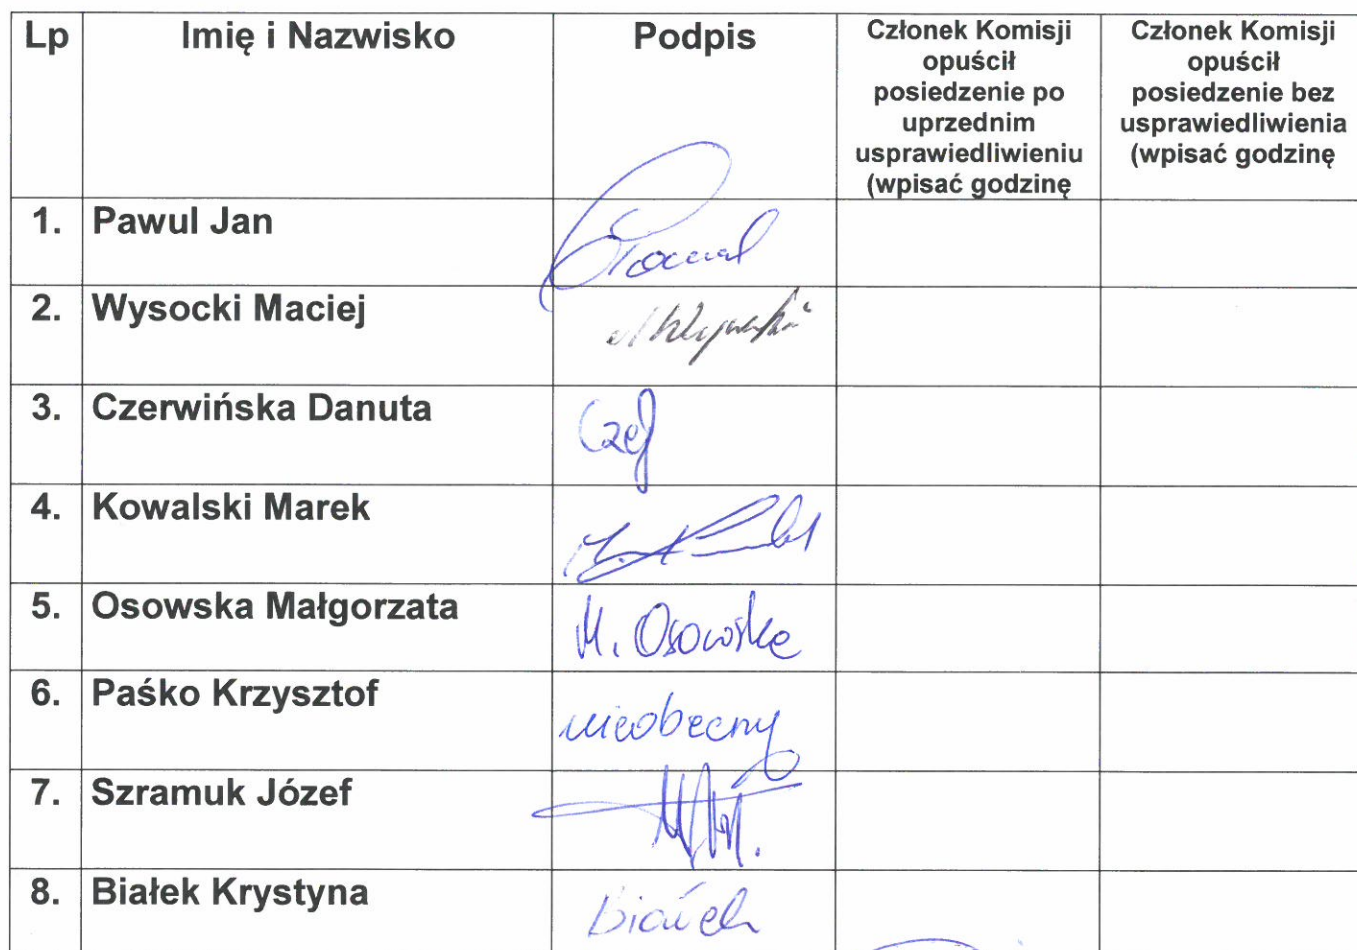 Lp Imię i Nazwisko Podpis Członek Komisji opuścił posiedzenie po uprzednim usprawiedliwieniu (wpisać godzinę Członek Komisji opuścił posiedzenie bez usprawiedliwienia (wpisać godzinę
1. Pawul Jan
2. Wysocki Maciej
3. Czerwińska Danuta
4. Kowalski Marek
5. Osowska Małgorzata M. Osowska
6. Paśko Krzysztof nieobecny
7. Szramuk Józef
8. Białek Krystyna Białek